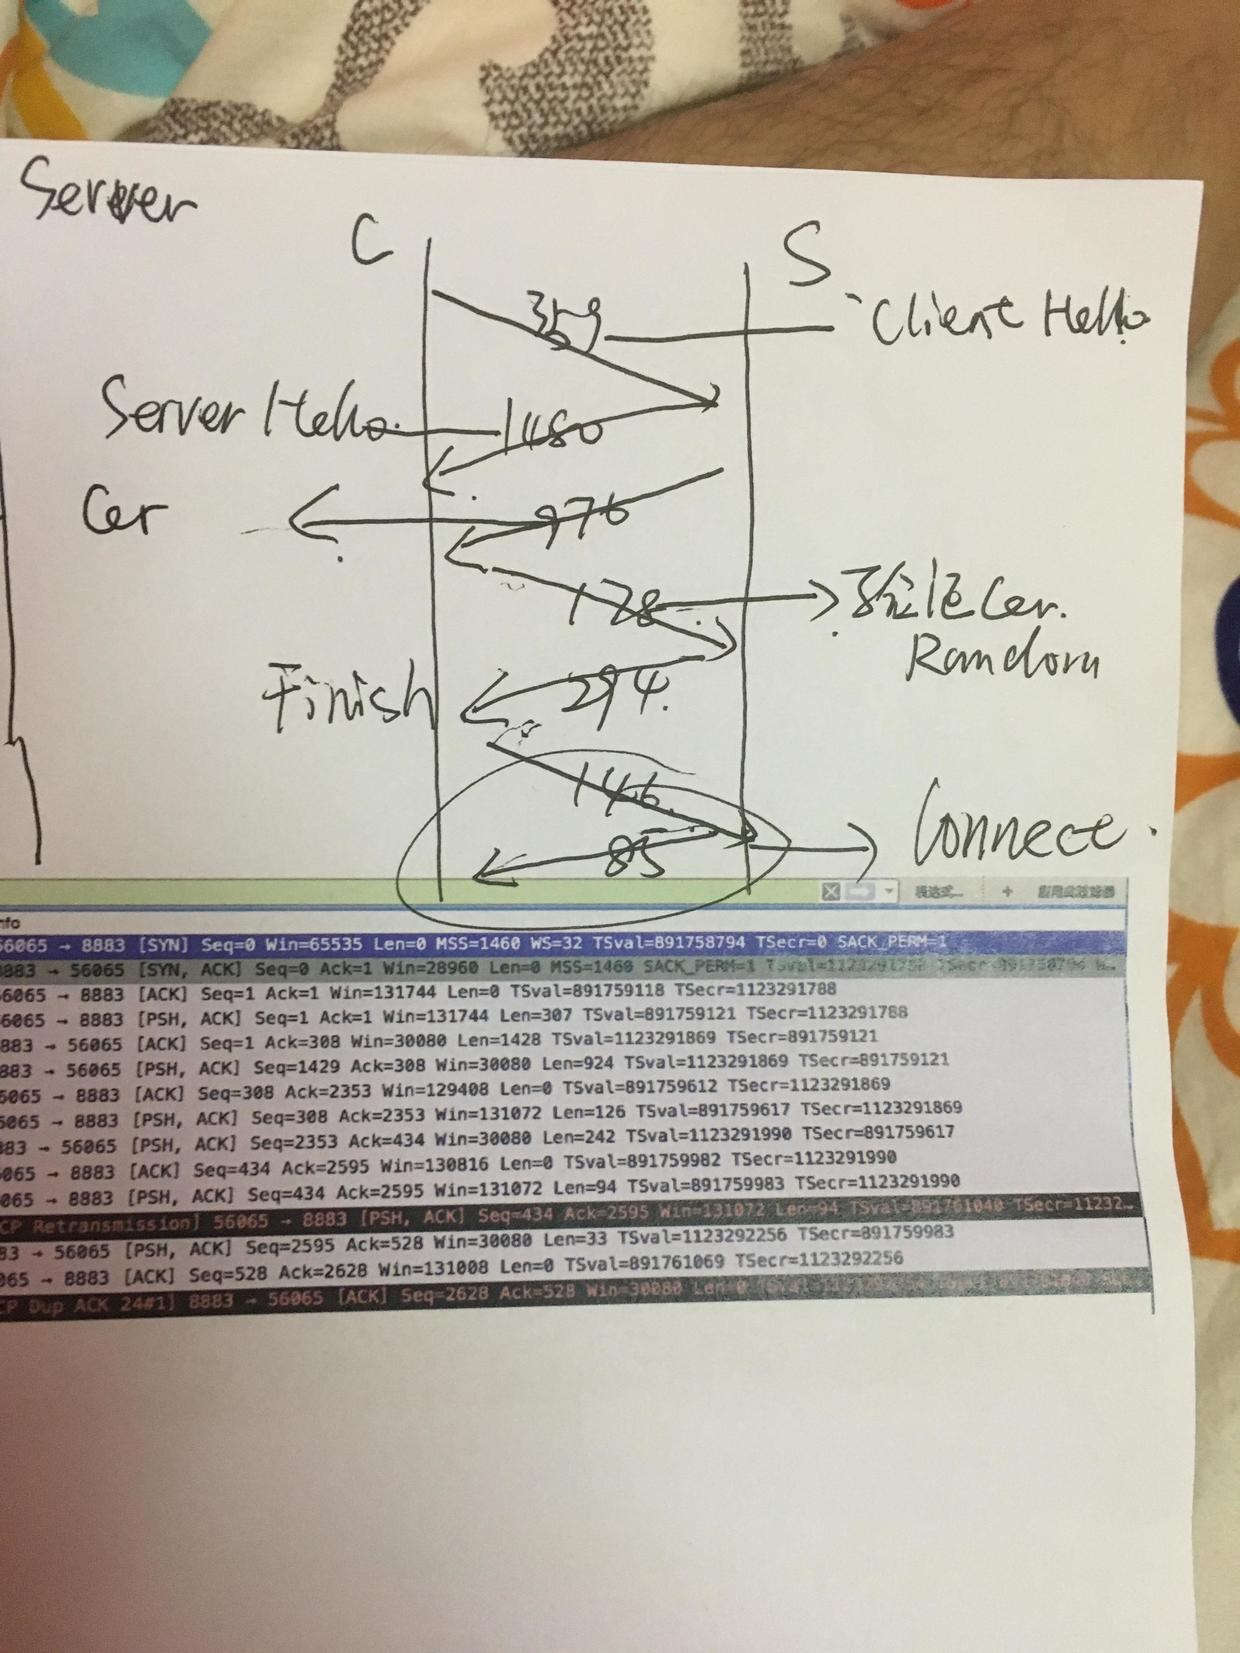 Server
C
S
359
Client Hello
Server Hello
1480
Cer
976
178
验证Cer.
Random
Finish
294.
146
85
Connect
表达式… +
nfo
56065 → 8883 [SYN] Seq=0 Win=65535 Len=0 MSS=1460 WS=32 TSval=891758794 TSecr=0 SACK_PERM=1
8883 → 56065 [SYN, ACK] Seq=0 Ack=1 Win=28960 Len=0 MSS=1460 SACK_PERM=1
6065 → 8883 [ACK] Seq=1 Ack=1 Win=131744 Len=0 TSval=891759118 TSecr=1123291788
6065 → 8883 [PSH, ACK] Seq=1 Ack=1 Win=131744 Len=307 TSval=891759121 TSecr=1123291788
883 → 56065 [ACK] Seq=1 Ack=308 Win=30080 Len=1428 TSval=1123291869 TSecr=891759121
883 → 56065 [PSH, ACK] Seq=1429 Ack=308 Win=30080 Len=924 TSval=1123291869 TSecr=891759121
6065 → 8883 [ACK] Seq=308 Ack=2353 Win=129408 Len=0 TSval=891759612 TSecr=1123291869
6065 → 8883 [PSH, ACK] Seq=308 Ack=2353 Win=131072 Len=126 TSval=891759617 TSecr=1123291869
883 → 56065 [PSH, ACK] Seq=2353 Ack=434 Win=30080 Len=242 TSval=1123291990 TSecr=891759617
065 → 8883 [ACK] Seq=434 Ack=2595 Win=130816 Len=0 TSval=891759982 TSecr=1123291990
065 → 8883 [PSH, ACK] Seq=434 Ack=2595 Win=131072 Len=94 TSval=891759983 TSecr=1123291990
CP Retransmission] 56065 → 8883 [PSH, ACK] Seq=434 Ack=2595 Win=131072 Len=94 TSval=891761040 TSecr=11232…
83 → 56065 [PSH, ACK] Seq=2595 Ack=528 Win=30080 Len=33 TSval=1123292256 TSecr=891759983
065 → 8883 [ACK] Seq=528 Ack=2628 Win=131008 Len=0 TSval=891761069 TSecr=1123292256
CP Dup ACK 24#1] 8883 → 56065 [ACK] Seq=2628 Ack=528 Win=30080 Len=0